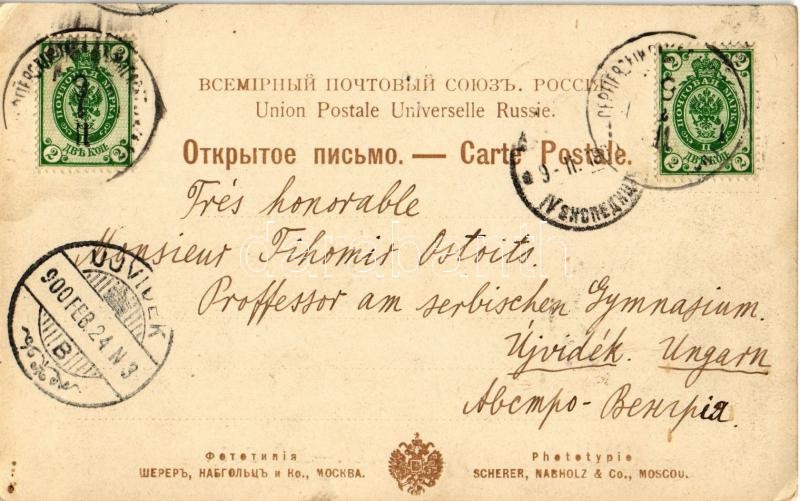 ВСЕМІРНЫЙ ПОЧТОВЫЙ СОЮЗЪ. РОССІЯ
Union Postale Universelle Russie.
Открытое письмо. — Carte Postale.
ПОЧТОВАЯ МАРКА
2 ДВѢ КОП. 2
ПОЧТОВАЯ МАРКА
2 ДВѢ КОП. 2
9-II.
IV ЭКСПЕДИЦ
Trés honorable
Monsieur Tihomir Ostoits.
Proffessor am serbischen Gymnasium.
Újvidék. Ungarn
Австро-Венгрія.
UJVIDÉK
900 FEB. 24 N 3
B
darabanth
Фототипія
ШЕРЕРЪ, НАБГОЛЬЦЪ и Ко., МОСКВА.
Phototypie
SCHERER, NABHOLZ & Co., MOSCOU.